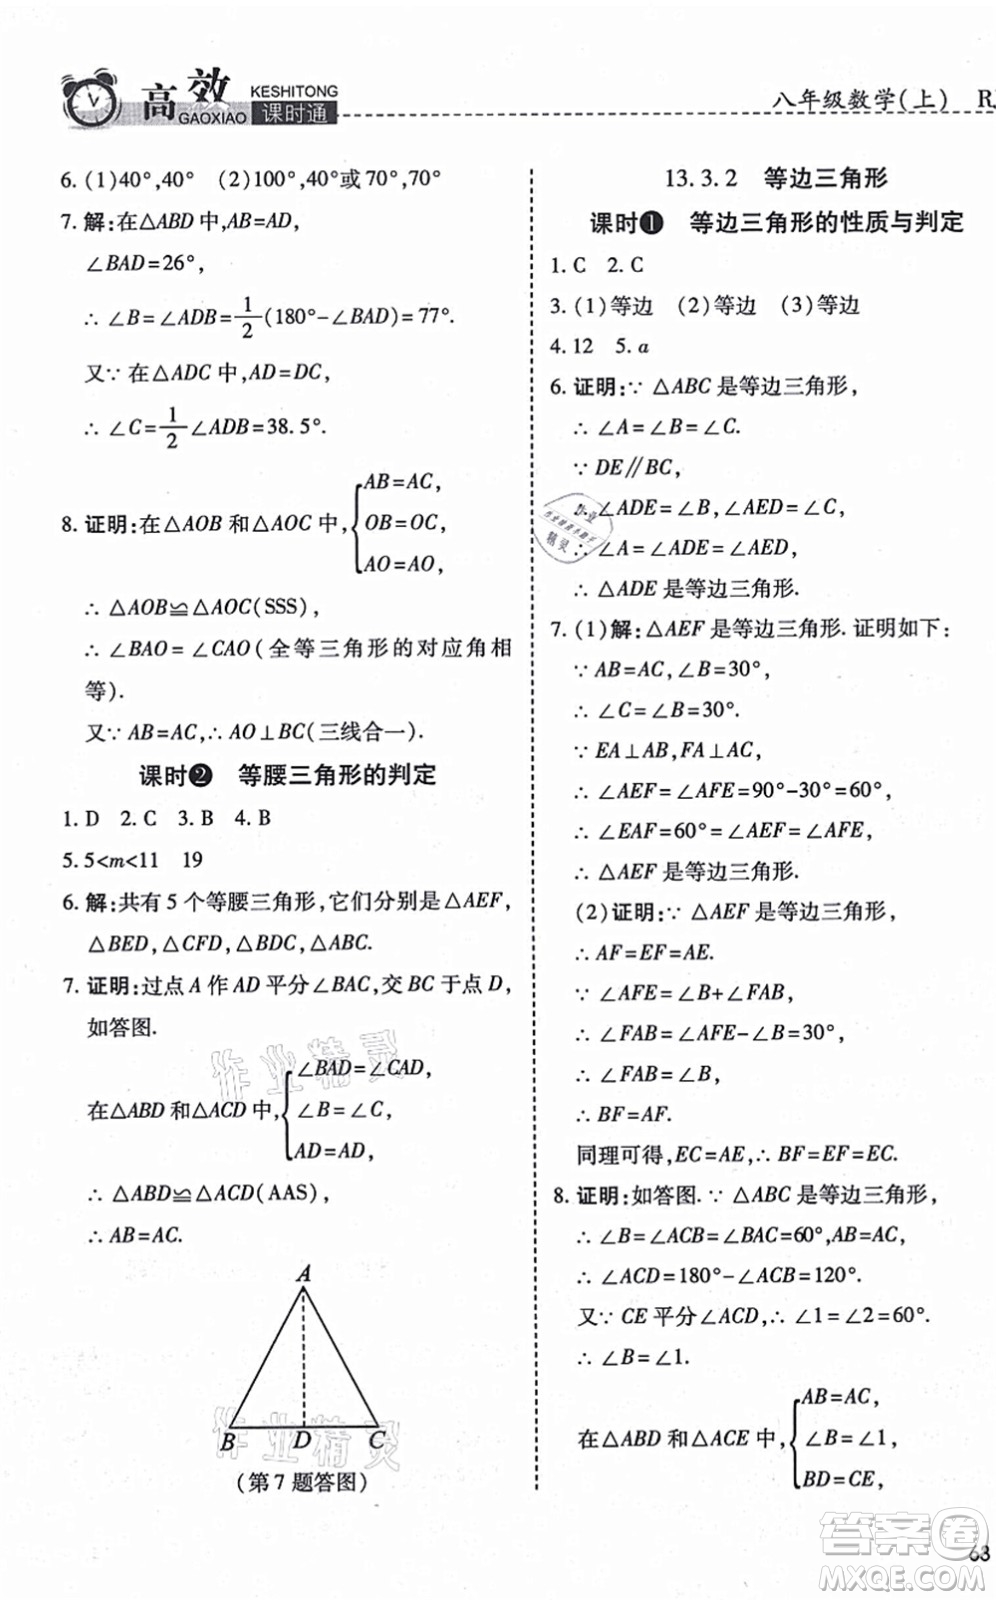 高效
KESHITONG
GAOXIAO
课时通
八年级数学(上) RJ
6. (1)40°,40° (2)100°,40°或70°,70°
7. 解:在△ABD 中,AB=AD,
∠BAD=26°,
∴ ∠B=∠ADB=1/2(180°-∠BAD)=77°.
又∵ 在△ADC 中,AD=DC,
∴ ∠C=1/2∠ADB=38.5°.
8. 证明:在△AOB 和△AOC 中,{AB=AC,
OB=OC,
AO=AO,
∴ △AOB≌△AOC(SSS),
∴ ∠BAO=∠CAO(全等三角形的对应角相
等).
又∵ AB=AC,∴ AO⊥BC(三线合一).
课时❷ 等腰三角形的判定
1. D 2. C 3. B 4. B
5. 5<m<11 19
6. 解:共有 5 个等腰三角形,它们分别是△AEF,
△BED,△CFD,△BDC,△ABC.
7. 证明:过点 A 作 AD 平分∠BAC,交 BC 于点 D,
如答图.
在△ABD 和△ACD 中,{∠BAD=∠CAD,
∠B=∠C,
AD=AD,
∴ △ABD≌△ACD(AAS),
∴ AB=AC.
A
B D C
(第 7 题答图)
13.3.2 等边三角形
课时❶ 等边三角形的性质与判定
1. C 2. C
3. (1)等边 (2)等边 (3)等边
4. 12 5. a
6. 证明:∵ △ABC 是等边三角形,
∴ ∠A=∠B=∠C.
∵ DE∥BC,
∠ADE=∠B,∠AED=∠C,
∴ ∠A=∠ADE=∠AED,
∴ △ADE 是等边三角形.
7. (1)解:△AEF 是等边三角形. 证明如下:
∵ AB=AC,∠B=30°,
∴ ∠C=∠B=30°.
∵ EA⊥AB,FA⊥AC,
∴ ∠AEF=∠AFE=90°-30°=60°,
∴ ∠EAF=60°=∠AEF=∠AFE,
∴ △AEF 是等边三角形.
(2)证明:∵ △AEF 是等边三角形,
∴ AF=EF=AE.
∵ ∠AFE=∠B+∠FAB,
∴ ∠FAB=∠AFE-∠B=30°,
∴ ∠FAB=∠B,
∴ BF=AF.
同理可得,EC=AE,∴ BF=EF=EC.
8. 证明:如答图. ∵ △ABC 是等边三角形,
∴ ∠B=∠ACB=∠BAC=60°,AB=AC,
∴ ∠ACD=180°-∠ACB=120°.
又∵ CE 平分∠ACD,∴ ∠1=∠2=60°.
∴ ∠B=∠1.
在△ABD 和△ACE 中,{AB=AC,
∠B=∠1,
BD=CE,
63
作业精灵
作业精灵
答案卷
MXQE.COM